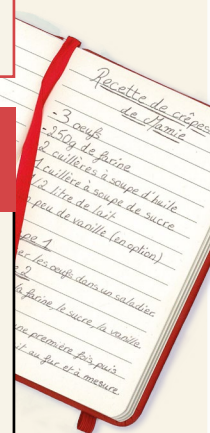 Recette de crêpes
de Mamie
-3 oeufs
-250g de farine
2 cuillères à soupe d'huile
1 cuillère à soupe de sucre
1/2 litre de lait
peu de vanille (en option)
pe 1
er les oeufs dans un saladier
e 2
la farine, le sucre, la vanille
ne première fois, puis
it au fur et à mesure